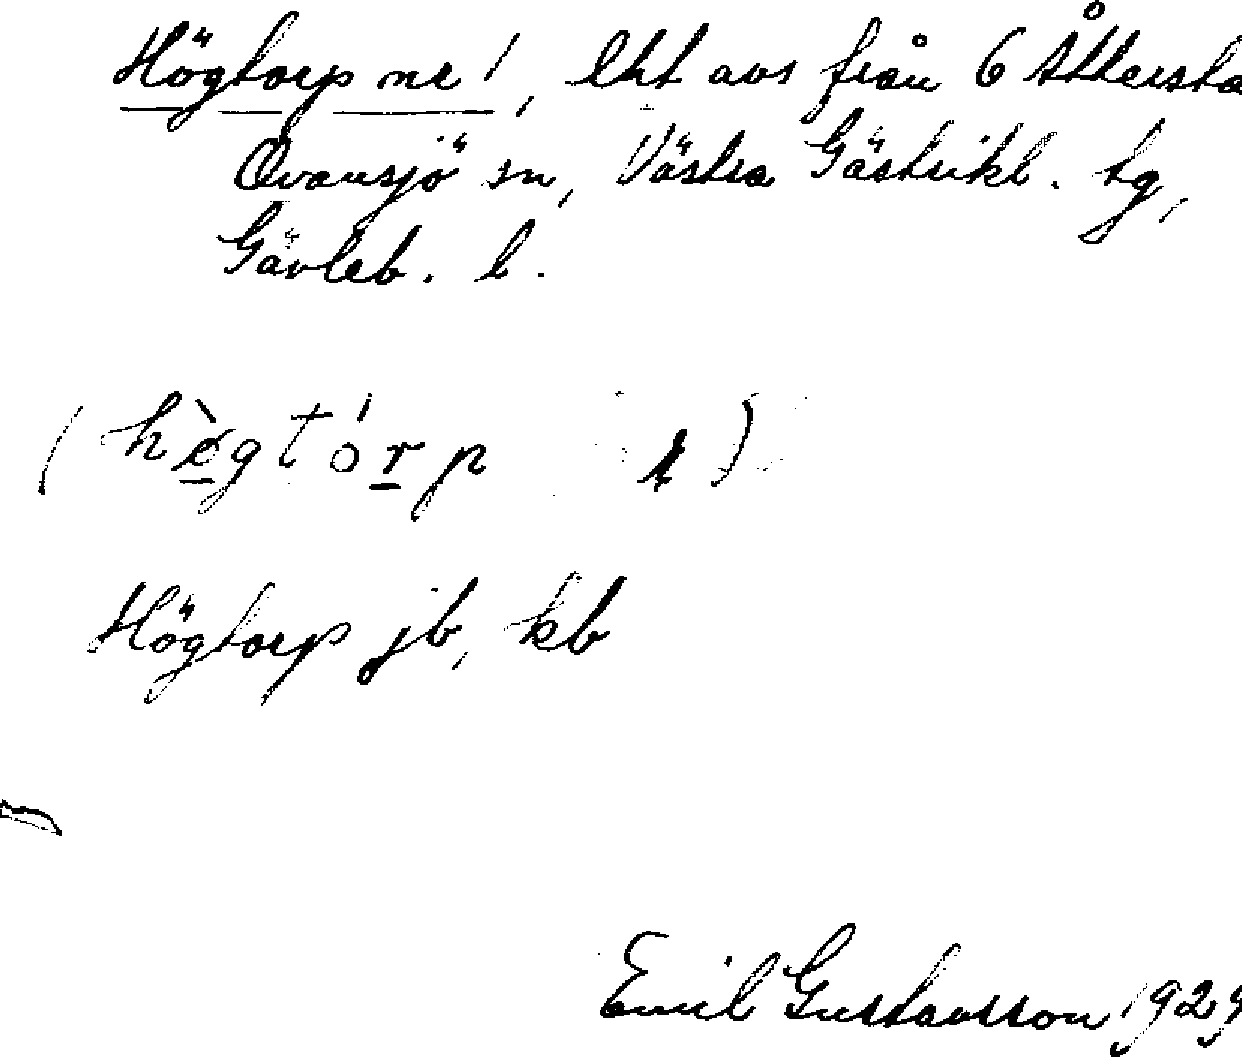 Högtorp nr 1, lht avs från 6 Åttersta
Ovansjö sn, Västra Gästrikl. tg,
Gävleb. l.
(hø̀gtórp
Högtorp jb, kb
Emil Gustavsson